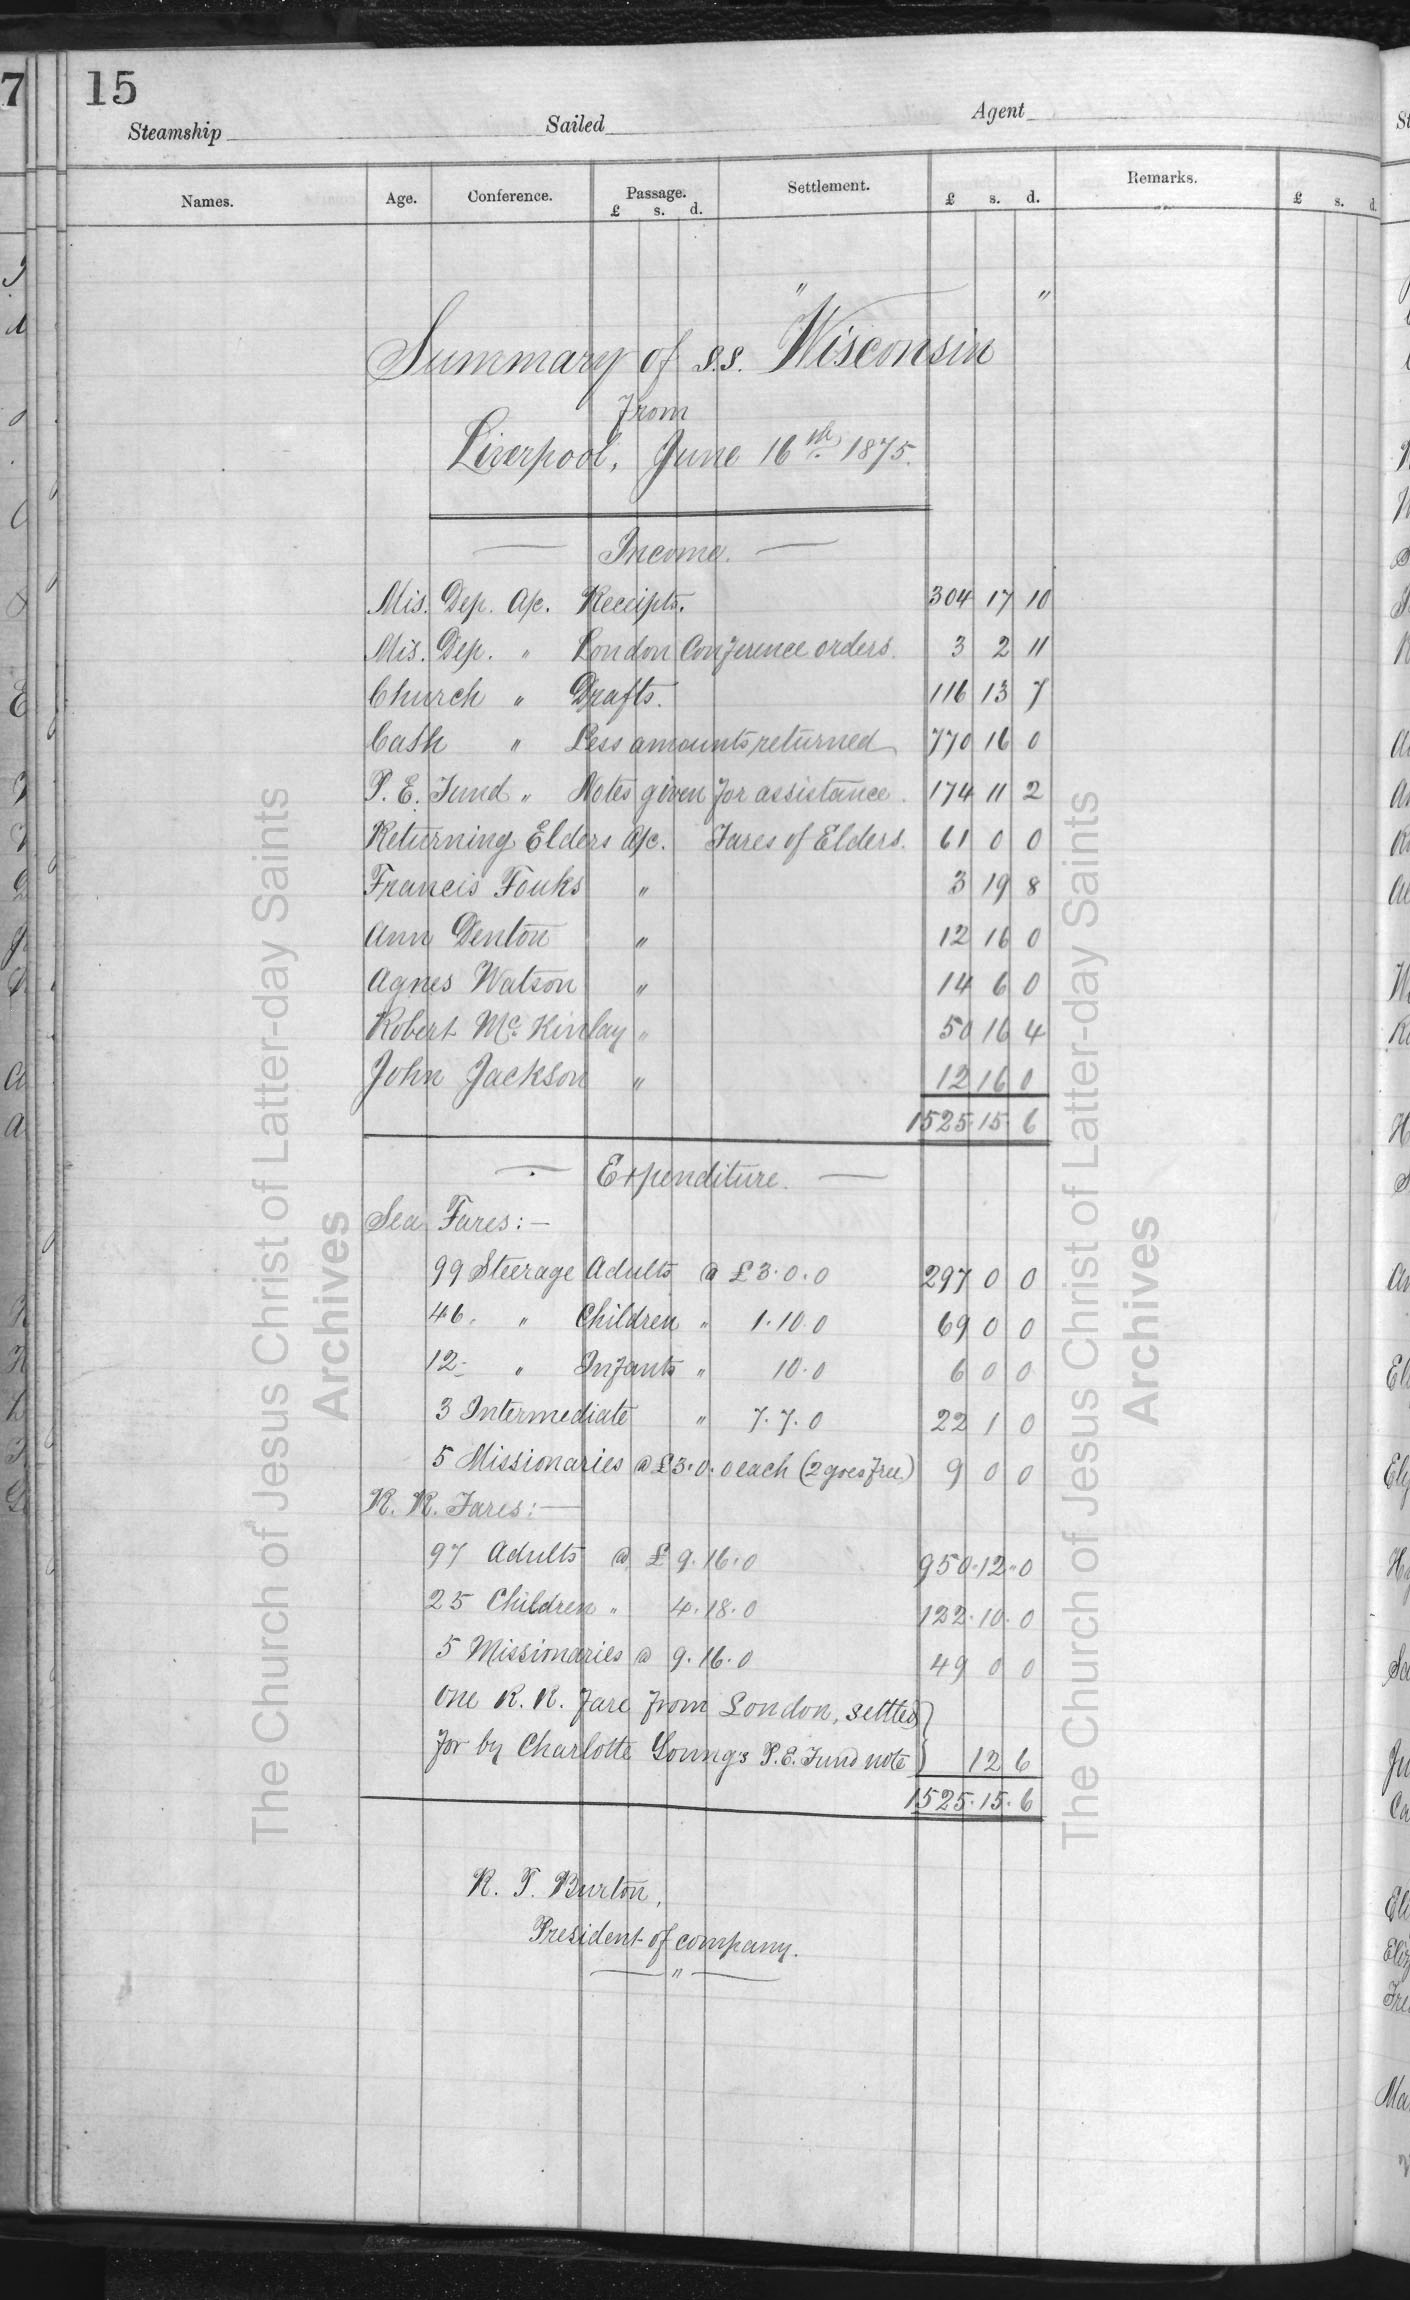 15
Steamship Sailed Agent
Names. Age. Conference. Passage. Settlement. £ s. d. Remarks. £ s. d.
£ s. d.
Summary of s.s. "Wisconsin"
from
Liverpool, June 16th. 1875.
Income.
Mis. Dep. a/c. Receipts. 304 17 10
Mis. Dep. " London Conference orders. 3 2 11
Church " Drafts. 116 13 7
Cash " Less amounts returned 770 16 0
P. E. Fund " Notes given for assistance. 174 11 2
Returning Elders a/c. Fares of Elders. 61 0 0
Francis Fouks " 3 19 8
Ann Denton " 12 16 0
Agnes Watson " 14 6 0
Robert Mc. Kinlay " 50 16 4
John Jackson " 12 16 0
1525. 15. 6
Expenditure.
Sea Fares:—
99 Steerage Adults @ £3. 0. 0 297 0 0
46. " Children " 1. 10. 0 69 0 0
12- " Infants " 10. 0 6 0 0
3 Intermediate " 7. 7. 0 22 1 0
5 Missionaries @ £3. 0. 0 each (2 goes free) 9 0 0
R. R. Fares:—
97 Adults @ £ 9. 16. 0 950. 12. 0
25 Children " 4. 18. 0 122. 10. 0
5 Missionaries @ 9. 16. 0 49 0 0
One R. R. fare from London, settled
for by Charlotte Young's P. E. Fund note } 12 6
1525. 15. 6
R. T. Burton,
President of company.
"
The Church of Jesus Christ of Latter-day Saints
Archives
The Church of Jesus Christ of Latter-day Saints
Archives